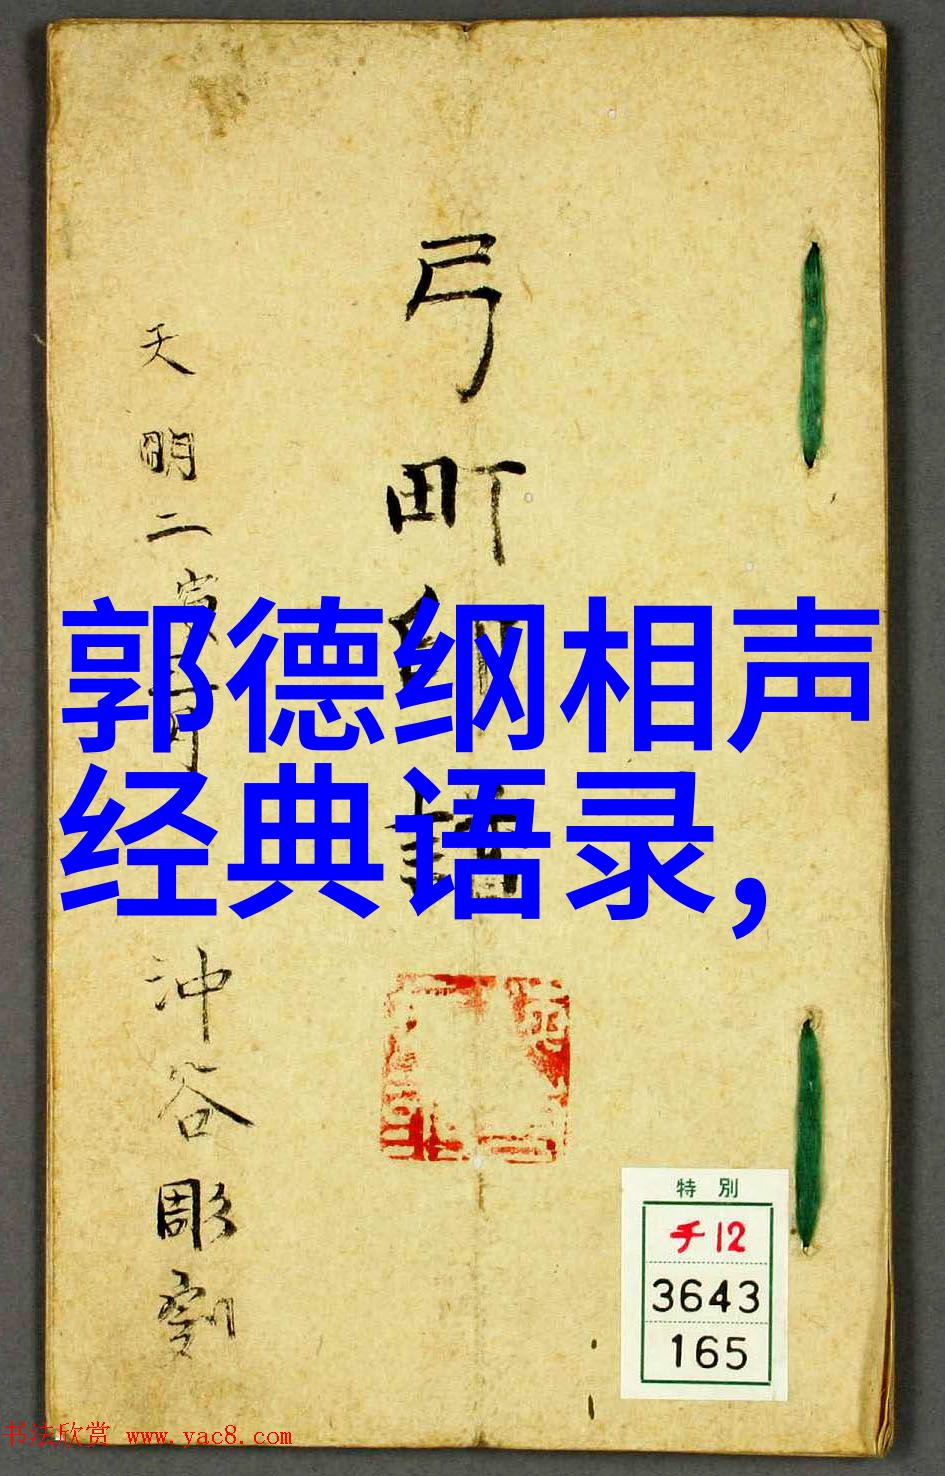 弓町
天明二寅
郭德纲相声
经典语录,
沖谷彫刻
特別
チ12
3643
165
书法欣赏 www.yac8.com